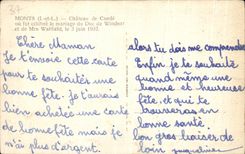 27
MONTS (I.-et-L.) - Château de Candé
où fut célébré le mariage du Duc de Windsor
et de Mrs Warfield, le 3 juin 1937.
Chère Maman
Je t'envoie cette carte
pour te souhaitez une
bonne fête. Je t'aurais
bien achetez une carte
de bonne fête mais je
n'ai plus d'argent.
alors tu dois me comprendre
Enfin je te souhaite
quand même une
bonne et heureuse
fête, et qui te
trouvera en
bonne santé.
ton gros baiser de
loin